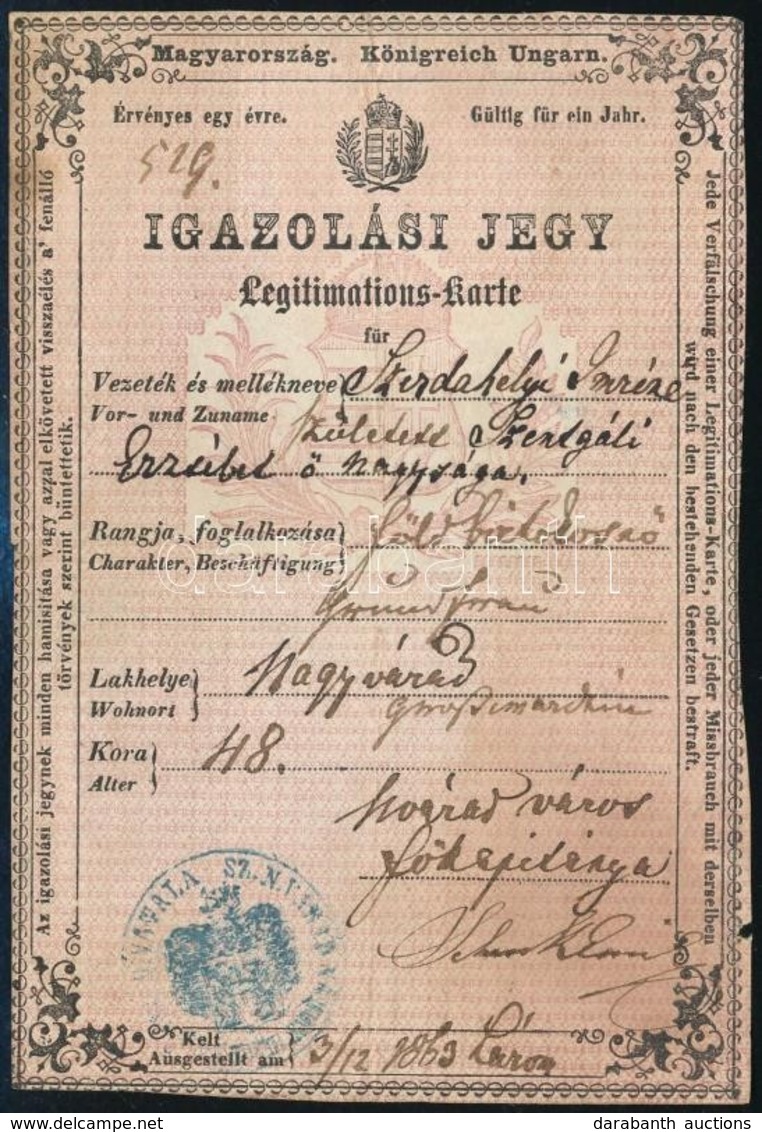 Magyarország. Königreich Ungarn.
Érvényes egy évre.
Gültig für ein Jahr.
519.
IGAZOLÁSI JEGY
Legitimations-Karte
für
Vezeték és mellékneve
Vor- und Zuname
Szerdahelyi Imréné
született Szentgáli
Erzsébet ő nagysága.
Rangja, foglalkozása
Charakter, Beschäftigung
földbirtokosnő
Grundfrau
Lakhelye
Wohnort
Nagyvárad
Großwardein
Kora
Alter
48.
Nvárad város
főkapitánya
Kelt
Ausgestellt am
3/12 1863
Az igazolási jegynek minden hamisitása vagy azzal elkövetett visszaélés a' fenálló
törvények szerint büntettetik.
Jede Verfälschung einer Legitimations-Karte, oder jeder Missbrauch mit derselben
wird nach den bestehenden Gesetzen bestraft.
darabanth
darabanth auctions